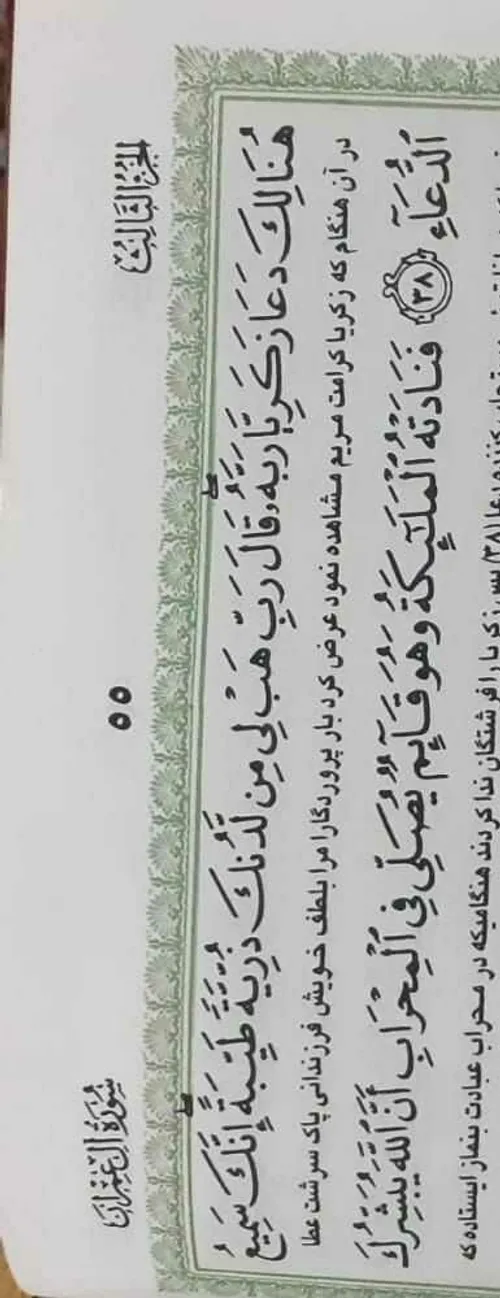 الجُزْءُ الثَّالِثُ
٥٥
سُورَةُ آلِ عِمْرَانَ
هُنَالِكَ دَعَا زَكَرِيَّا رَبَّهُۥ ۖ قَالَ رَبِّ هَبْ لِي مِن لَّدُنكَ ذُرِّيَّةً طَيِّبَةً ۖ إِنَّكَ سَمِيعُ
در آن هنگام که زکریا کرامت مریم مشاهده نمود عرض کرد بار پروردگارا مرا بلطف خویش فرزندانی پاک سرشت عطا
ٱلدُّعَآءِ ﴿٣٨﴾ فَنَادَتْهُ ٱلْمَلَٰٓئِكَةُ وَهُوَ قَآئِمٌ يُصَلِّي فِي ٱلْمِحْرَابِ أَنَّ ٱللَّهَ يُبَشِّرُكَ
دعا (۳۸) پس زکریا را فرشتگان ندا کردند هنگامیکه در محراب عبادت بنماز ایستاده که